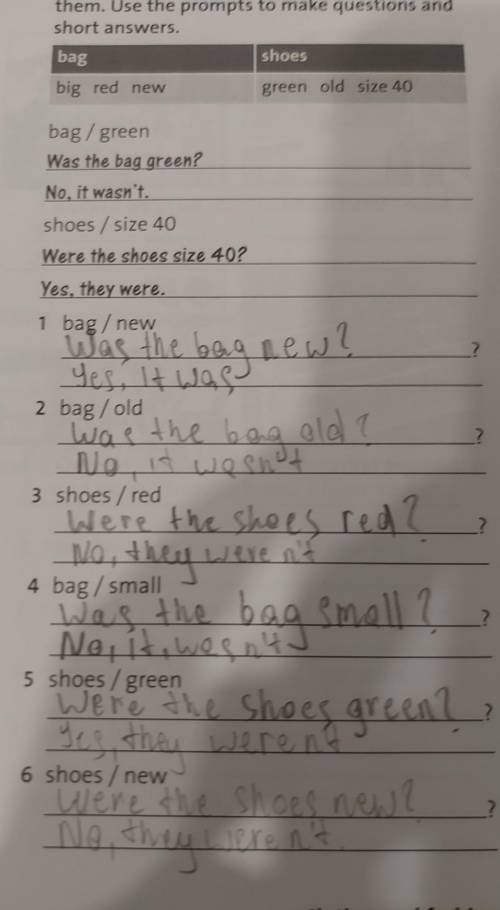 them. Use the prompts to make questions and
short answers.
bag shoes
big red new green old size 40
bag / green
Was the bag green?
No, it wasn't.
shoes / size 40
Were the shoes size 40?
Yes, they were.
1 bag / new
Was the bag new? ?
Yes, It was
2 bag / old
Was the bag old? ?
No, it wasn't
3 shoes / red
Were the shoes red? ?
No, they weren't
4 bag / small
Was the bag small? ?
No, it, wasn't
5 shoes / green
Were the shoes green? ?
Yes, they weren't
6 shoes / new
Were the shoes new? ?
No, they weren't.